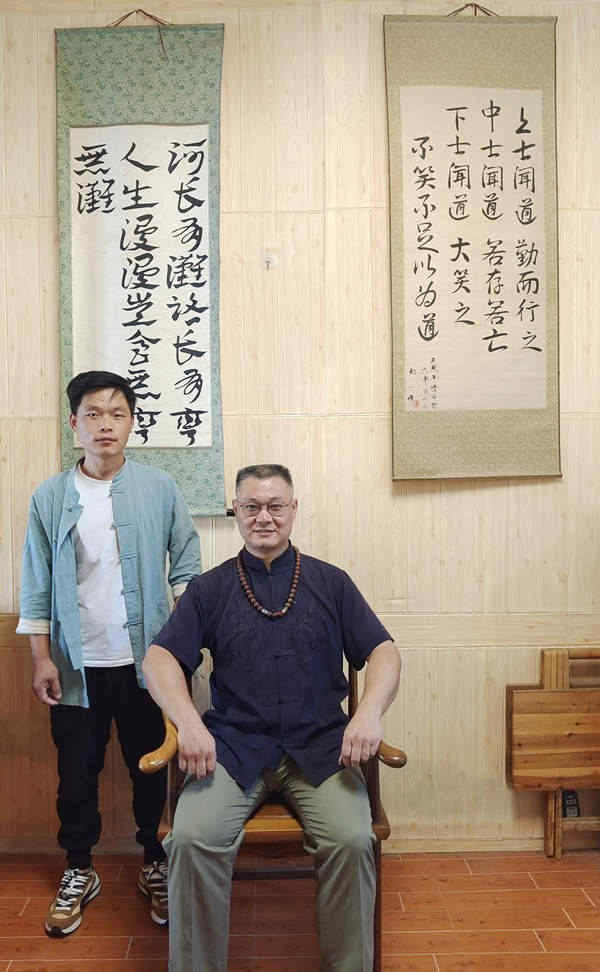 上士聞道勤而行之
中士聞道若存若亡
下士聞道大笑之
不笑不足以为道
河长有灘路长有彎
人生漫漫岂会无彎
無灘